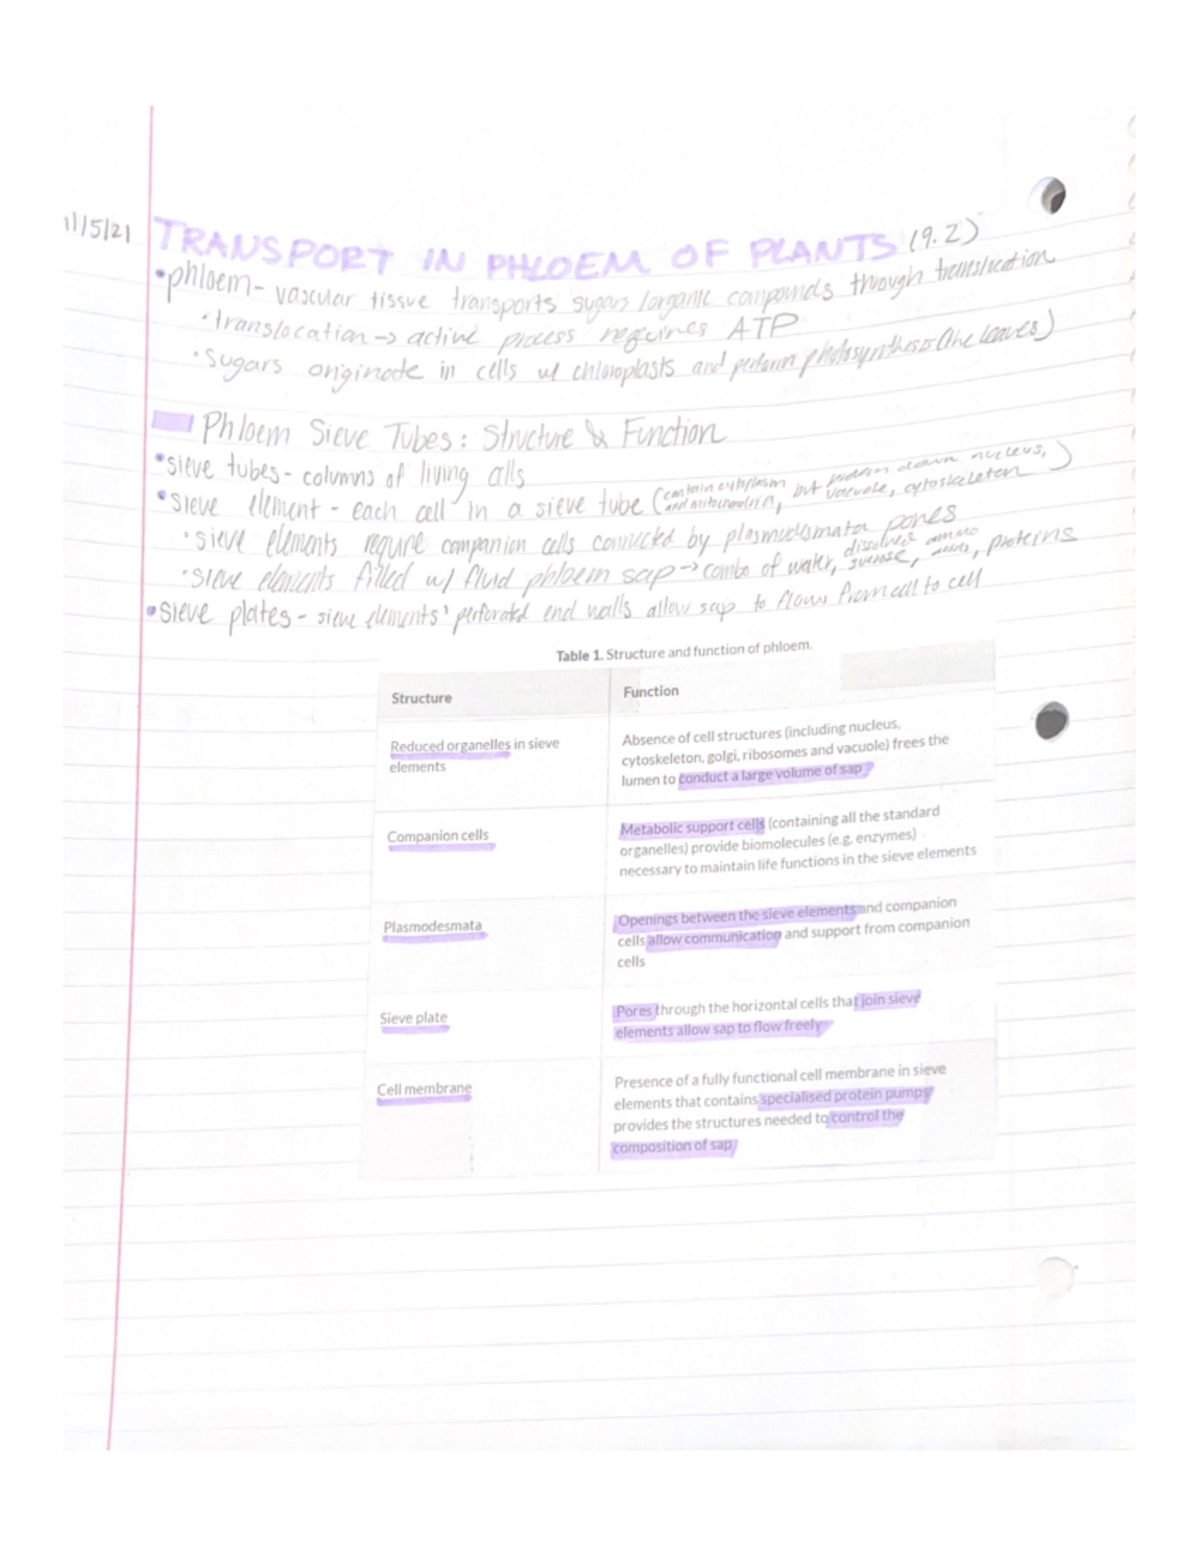 11/5/21 TRANSPORT IN PHLOEM OF PLANTS (9.2)
•phloem - vascular tissue transports sugars/organic compounds through translocation
•translocation → active process requires ATP
•Sugars originate in cells w/ chloroplasts and perform photosynthesis (the leaves)
Phloem Sieve Tubes: Structure & Function
•sieve tubes - columns of living cells
•sieve element - each cell in a sieve tube (contain cytoplasm and mitochondria, but broken down nucleus, vacuole, cytoskeleton)
•sieve elements require companion cells connected by plasmodesmata pores
•sieve elements filled w/ fluid phloem sap → combo of water, dissolved sucrose, amino acids, proteins
•sieve plates - sieve elements' perforated end walls allow sap to flow from cell to cell
Table 1. Structure and function of phloem.
Structure Function
Reduced organelles in sieve
elements
Absence of cell structures (including nucleus,
cytoskeleton, golgi, ribosomes and vacuole) frees the
lumen to conduct a large volume of sap
Companion cells
Metabolic support cells (containing all the standard
organelles) provide biomolecules (e.g. enzymes)
necessary to maintain life functions in the sieve elements
Plasmodesmata
Openings between the sieve elements and companion
cells allow communication and support from companion
cells
Sieve plate
Pores through the horizontal cells that join sieve
elements allow sap to flow freely
Cell membrane
Presence of a fully functional cell membrane in sieve
elements that contains specialised protein pumps
provides the structures needed to control the
composition of sap